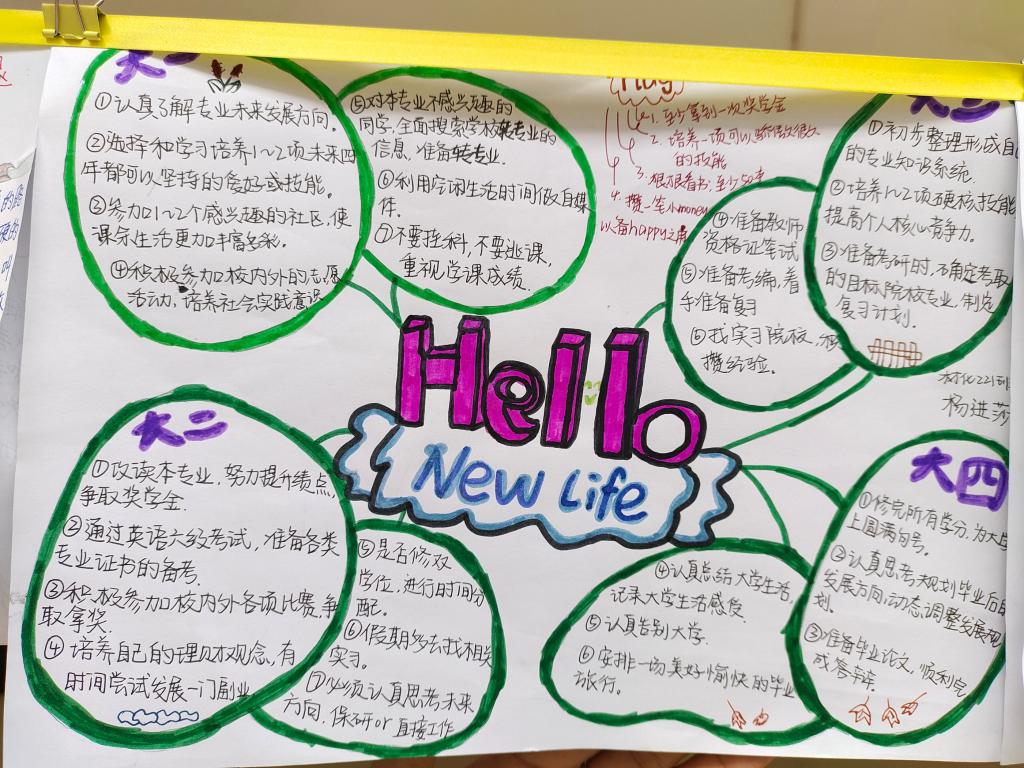 大一
①认真了解专业未来发展方向.
②选择和学习培养1~2项未来四
年都可以坚持的爱好或技能。
③参加1~2个感兴趣的社区,使
课余生活更加丰富多彩.
④积极参加校内外的志愿
活动,培养社会实践意识
⑤对本专业不感兴趣的
同学,全面搜索学校转专业的
信息,准备转专业.
⑥利用空闲生活时间做自媒
体.
⑦不要挂科,不要逃课,
重视学课成绩.
flag
1. 至少拿到一次奖学金
2. 培养一项可以骄傲很久
的技能
3. 狠狠看书.至少50本
4. 攒一笔小money
以备happy之用
大三
①初步整理形成自己
的专业知识系统.
②培养1~2项硬核技能
提高个人核心竞争力.
③准备考研时,确定考取
的目标院校专业,制定
复习计划.
④准备教师
资格证笔试
⑤准备考编,着
手准备复习
⑥找实习院校,积
攒经验。
材化221班
杨进莎
Hello
New Life
大二
①攻读本专业,努力提升绩点,
争取奖学金.
②通过英语六级考试,准备各类
专业证书的备考.
③积极参加校内外各项比赛,争
取拿奖.
④培养自己的理财观念,有
时间尝试发展一门副业
⑤是否修双
学位,进行时间分
配.
⑥假期多去找相关
实习.
⑦必须认真思考未来
方向,保研or直接工作
大四
①修完所有学分,为大学
画上圆满句号。
②认真思考,规划毕业后的
发展方向,动态调整发展规
划.
③准备毕业论文,顺利完
成答辩.
④认真总结大学生活,
记录大学生活感受.
⑤认真告别大学.
⑥安排一场美好愉快的毕业
旅行。